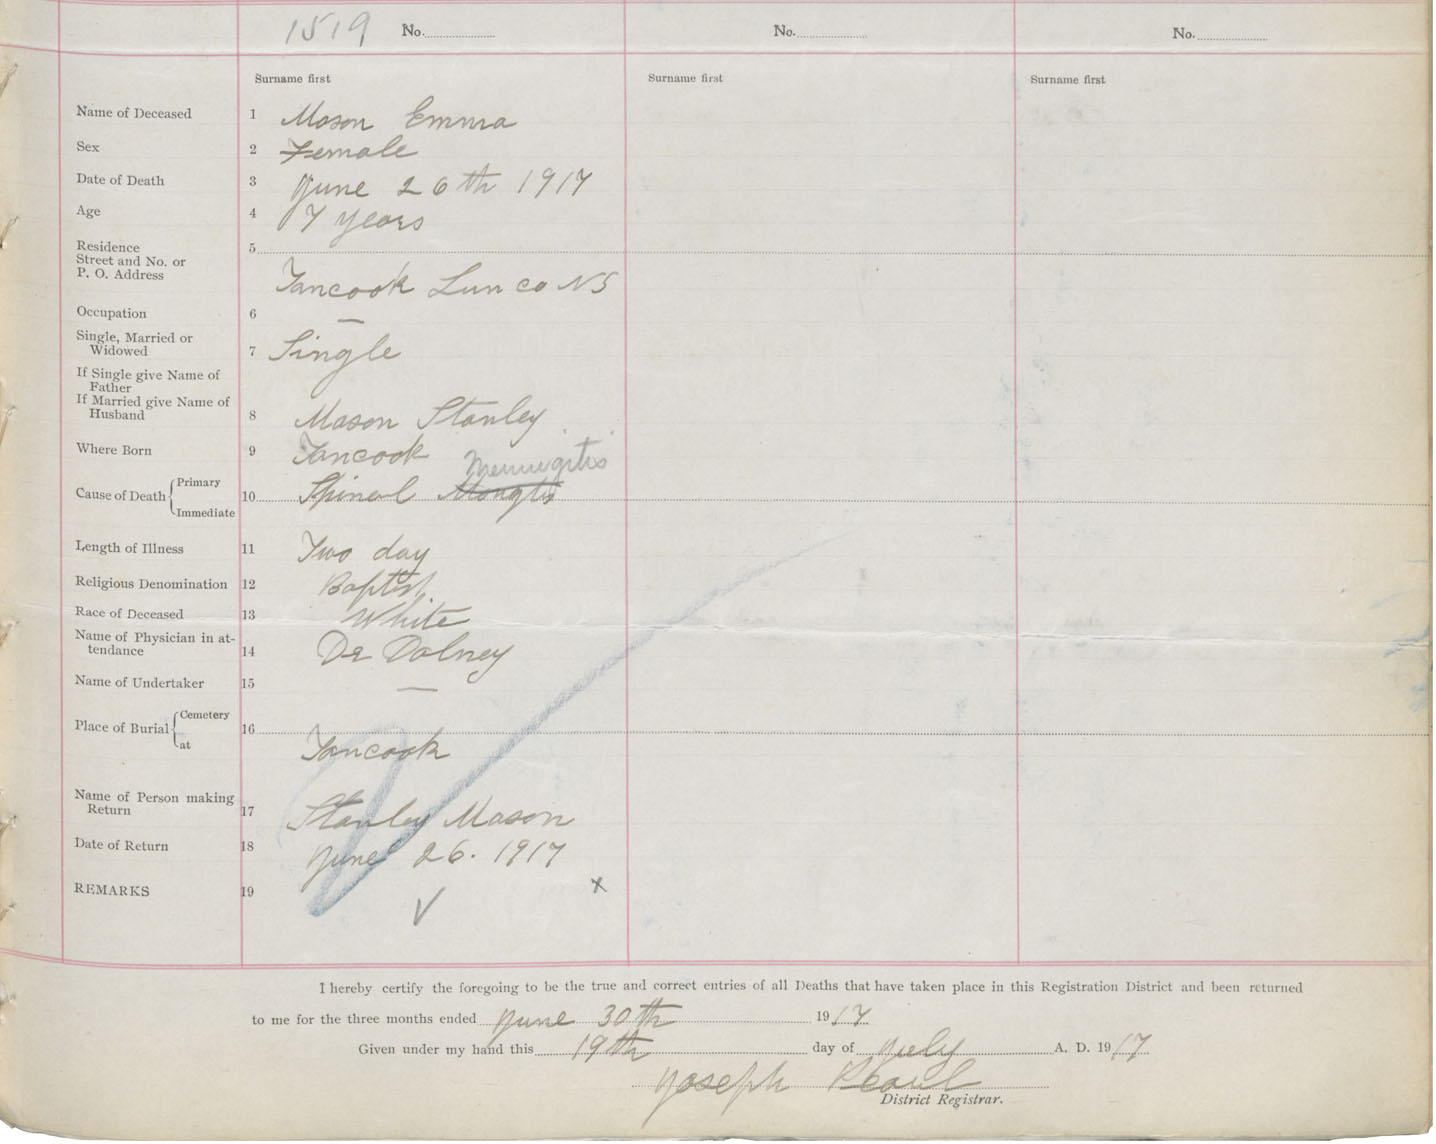 1519 No. No. No.
Surname first Surname first Surname first
Name of Deceased 1 Mason Emma
Sex 2 Female
Date of Death 3 June 26th 1917
Age 4 7 years
Residence 5
Street and No. or
P. O. Address Tancook Lun co NS
Occupation 6 —
Single, Married or
Widowed 7 Single
If Single give Name of
Father
If Married give Name of
Husband 8 Mason Stanley
Where Born 9 Tancook
Meningitis
Cause of Death { Primary Immediate 10 Spineal
Length of Illness 11 Two day
Religious Denomination 12 Baptist
Race of Deceased 13 White
Name of Physician in at-
tendance 14 De Dolney
Name of Undertaker 15 —
Place of Burial { Cemetery at 16
Tancook
Name of Person making
Return 17 Stanley Mason
Date of Return 18 June 26. 1917
REMARKS 19 x
√
I hereby certify the foregoing to be the true and correct entries of all Deaths that have taken place in this Registration District and been returned
to me for the three months ended June 30th 1917
Given under my hand this 19th day of July A. D. 1917
Joseph
District Registrar.